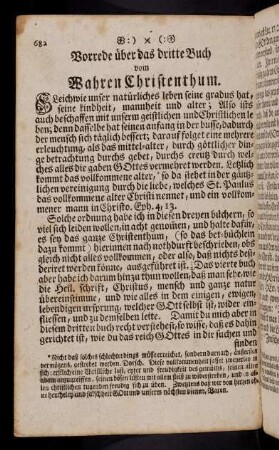 682 ☙:) × (:❧
Vorrede über das dritte Buch
vom
Wahren Christenthum.
Gleichwie unser natürliches leben seine gradus hat,
seine kindheit, mannheit und alter; Also ists
auch beschaffen mit unserm geistlichen und Christlichen le-
ben; denn dasselbe hat seinen anfang in der busse, dadurch
der mensch sich täglich bessert; darauf folget eine mehrere
erleuchtung, als das mittel-alter, durch göttlicher din-
ge betrachtung, durchs gebet, durchs creutz, durch wel-
ches alles die gaben GOttes vermehret werden. Letzlich
kommt das vollkommene alter, * so da stehet in der gäntz-
lichen vereinigung durch die liebe, welches St. Paulus
das vollkommene alter Christi nennet, und ein vollkom-
mener mann in Christo. Eph. 4, 13.
Solche ordnung habe ich in diesen dreyen büchern, so
viel sich leiden wollen, in acht genommen, und halte dafür,
es sey das gantze Christenthum (so das bet-büchlein
dazu kommt) hierinnen nach nothdurft beschrieben, ob
gleich nicht alles vollkommen, oder also, daß nichts desi-
deriret werden könne, ausgeführet ist. Das vierte buch
aber habe ich darum hinzu thun wollen, daß man sehe, wie
die Heil. schrift, Christus, mensch und gantze natur
übereinstimme, und wie alles in dem einigen, ewigen,
lebendigen ursprung, welcher GOtt selbst ist, wieder ein-
fliessen, und zu demselben leite. Damit du mich aber in
diesem dritten buch recht verstehest, so wisse, daß es dahin
gerichtet ist, wie du das reich GOttes in dir suchen und
finden
* Nicht daß solches schlechterdings